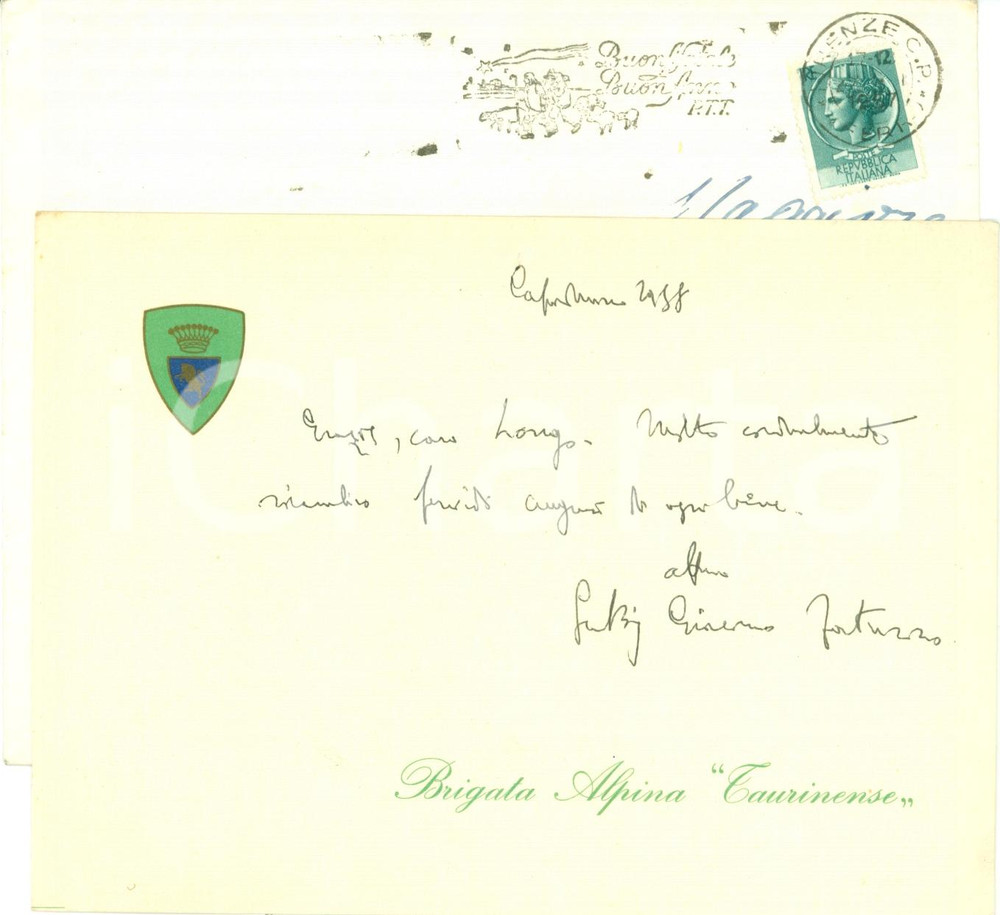 Buon Natale
Buon Anno
P.T.T.
FIRENZE C.P.
REPVBBLICA
ITALIANA
Capodanno 1958
Grazie, caro Longo. Molto cordialmente
ricambio fervidi auguri di ogni bene.
aff.mo
Giacomo Fortunato
Brigata Alpina “Taurinense„
iCharta